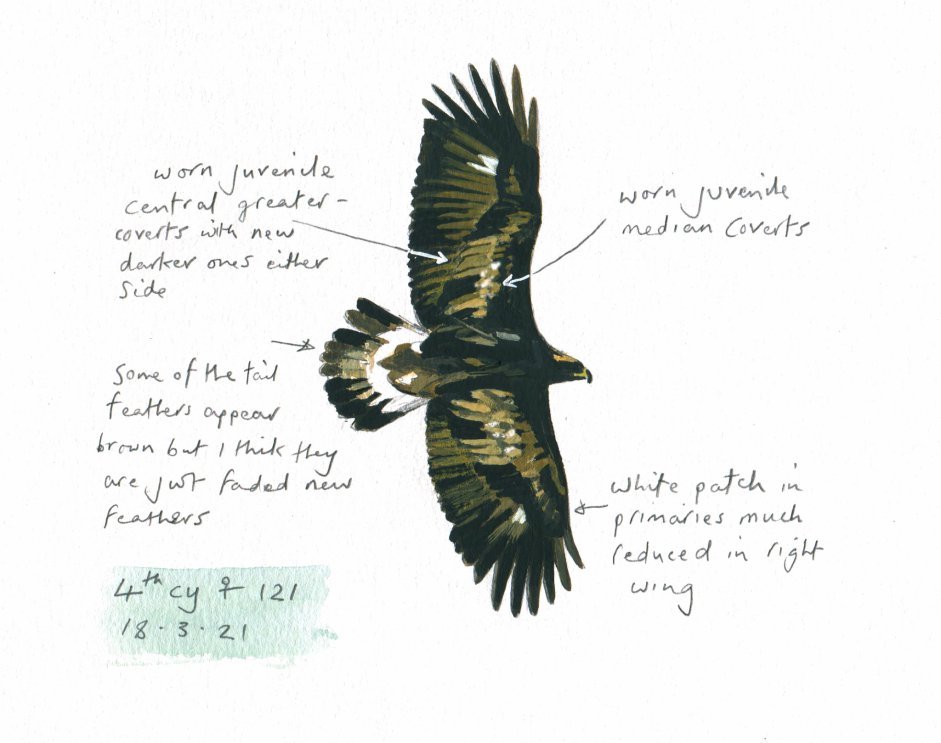 worn juvenile
central greater-
coverts with new
darker ones either
side
worn juvenile
median coverts
Some of the tail
feathers appear
brown but I thik they
are just faded new
feathers
white patch in
primaries much
reduced in right
wing
4th cy ♀ 121
18.3.21